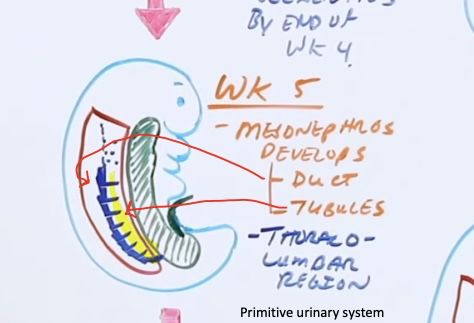 BY END OF
WK 4
WK 5
- MESONEPHROS
DEVELOPS
- DUCT
- TUBULES
- THORACO-
LUMBAR
REGION
Primitive urinary system